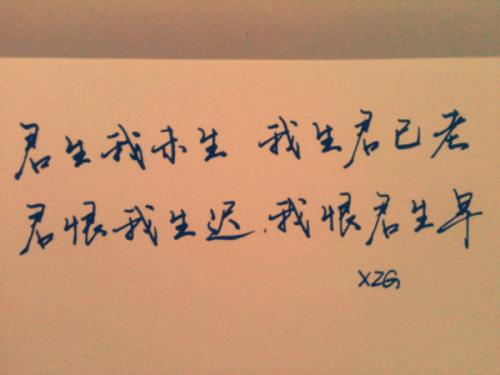 君生我未生 我生君已老
君恨我生迟,我恨君生早
XZG